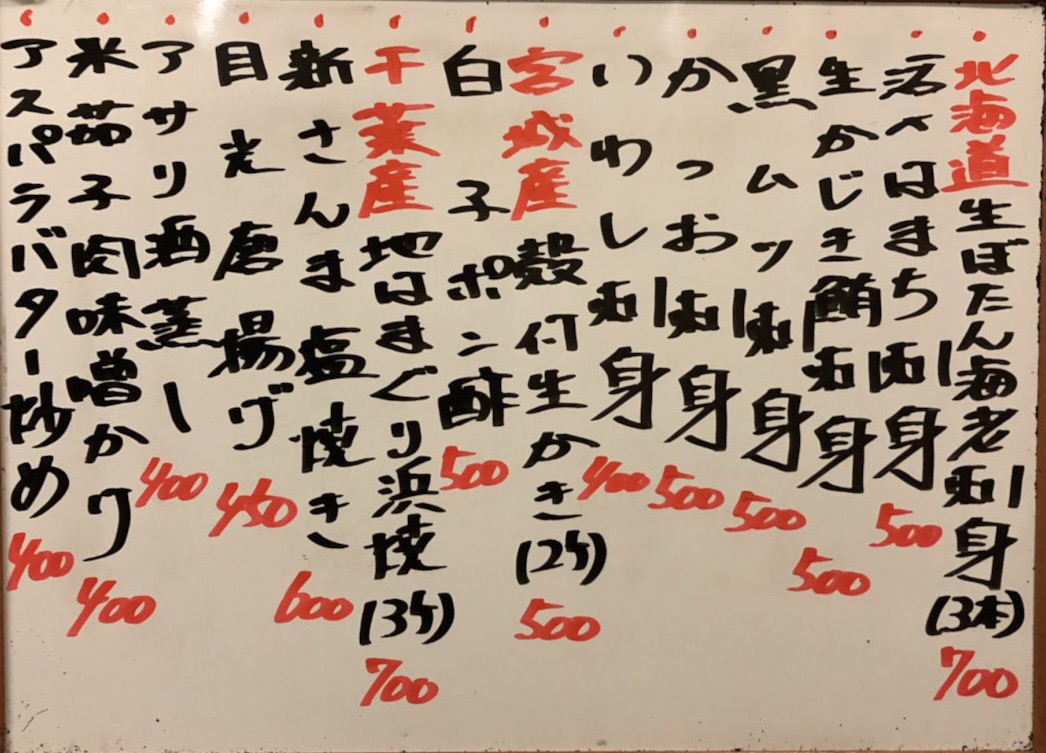 ・北海道生ぼたん海老刺身(3本) 700
・活〆はまち刺身 500
・生かじき鮪刺身 500
・黒ムツ刺身 500
・かつお刺身 500
・いわし刺身 400
・宮城産殻付生かき(2ケ) 500
・白子ポン酢 500
・千葉産地はまぐり浜焼(3ケ) 700
・新さんま塩焼き 600
・目光唐揚げ 450
・アサリ酒蒸し 400
・米茄子肉味噌かけ 400
・アスパラバター炒め 400